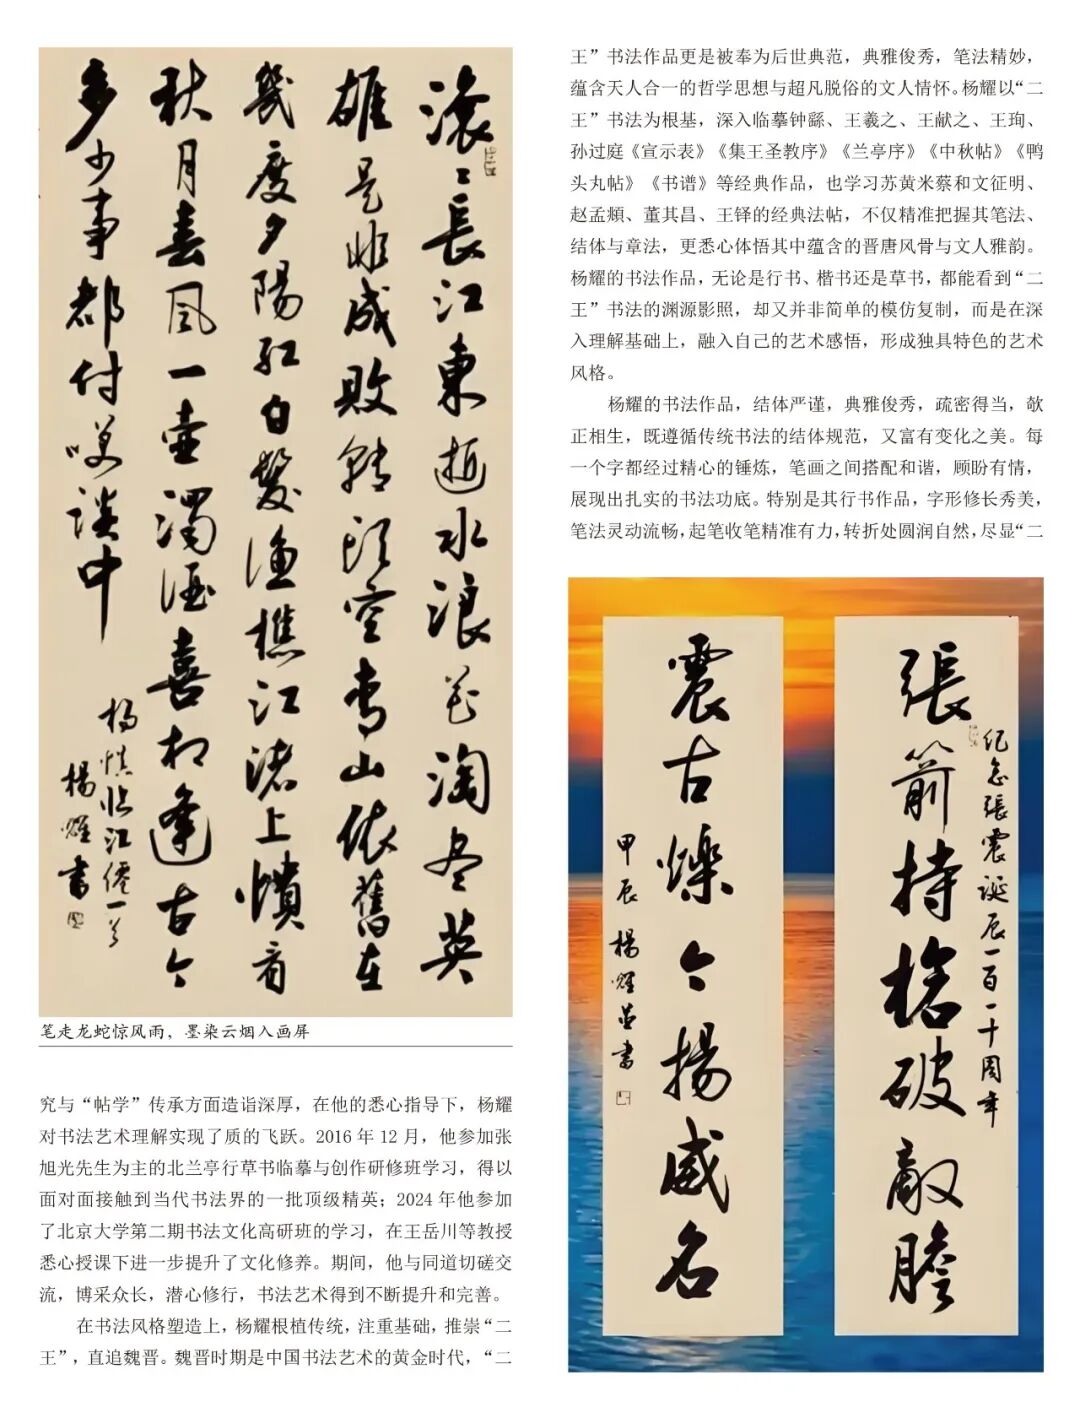 滚〻長江東逝水浪花淘尽英
雄是非成敗转頭空青山依舊在
幾度夕陽红白髮渔樵江渚上慣看
秋月春風一壶濁酒喜相逢古今
多少事都付笑談中
杨慎临江僊一首
楊耀書
笔走龙蛇惊风雨，墨染云烟入画屏
究与“帖学”传承方面造诣深厚，在他的悉心指导下，杨耀
对书法艺术理解实现了质的飞跃。2016 年 12 月，他参加张
旭光先生为主的北兰亭行草书临摹与创作研修班学习，得以
面对面接触到当代书法界的一批顶级精英；2024 年他参加
了北京大学第二期书法文化高研班的学习，在王岳川等教授
悉心授课下进一步提升了文化修养。期间，他与同道切磋交
流，博采众长，潜心修行，书法艺术得到不断提升和完善。
在书法风格塑造上，杨耀根植传统，注重基础，推崇“二
王”，直追魏晋。魏晋时期是中国书法艺术的黄金时代，“二
王”书法作品更是被奉为后世典范，典雅俊秀，笔法精妙，
蕴含天人合一的哲学思想与超凡脱俗的文人情怀。杨耀以“二
王”书法为根基，深入临摹钟繇、王羲之、王献之、王珣、
孙过庭《宣示表》《集王圣教序》《兰亭序》《中秋帖》《鸭
头丸帖》《书谱》等经典作品，也学习苏黄米蔡和文征明、
赵孟頫、董其昌、王铎的经典法帖，不仅精准把握其笔法、
结体与章法，更悉心体悟其中蕴含的晋唐风骨与文人雅韵。
杨耀的书法作品，无论是行书、楷书还是草书，都能看到“二
王”书法的渊源影照，却又并非简单的模仿复制，而是在深
入理解基础上，融入自己的艺术感悟，形成独具特色的艺术
风格。
杨耀的书法作品，结体严谨，典雅俊秀，疏密得当，欹
正相生，既遵循传统书法的结体规范，又富有变化之美。每
一个字都经过精心的锤炼，笔画之间搭配和谐，顾盼有情，
展现出扎实的书法功底。特别是其行书作品，字形修长秀美，
笔法灵动流畅，起笔收笔精准有力，转折处圆润自然，尽显“二
纪念張震诞辰一百一十周年
張箭持枪破敵膽
震古爍今揚威名
甲辰 楊耀並書